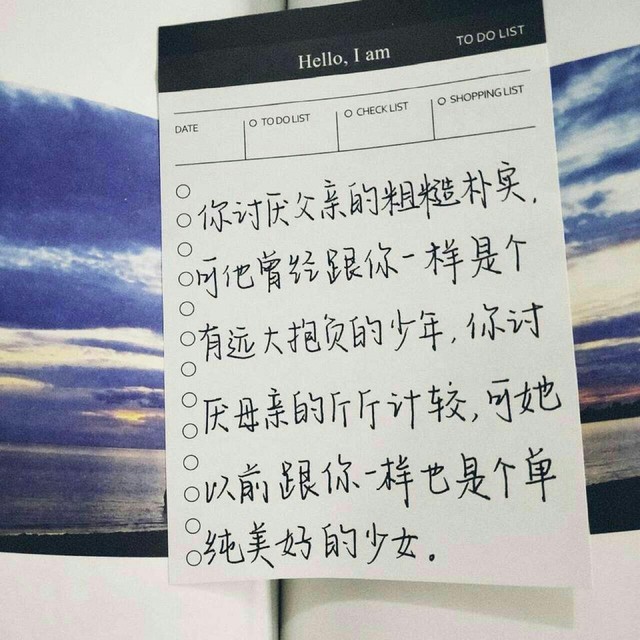 Hello, I am
TO DO LIST
DATE
TO DO LIST
CHECK LIST
SHOPPING LIST
你讨厌父亲的粗糙朴实,
可他曾经跟你一样是个
有远大抱负的少年,你讨
厌母亲的斤斤计较,可她
以前跟你一样也是个单
纯美好的少女。